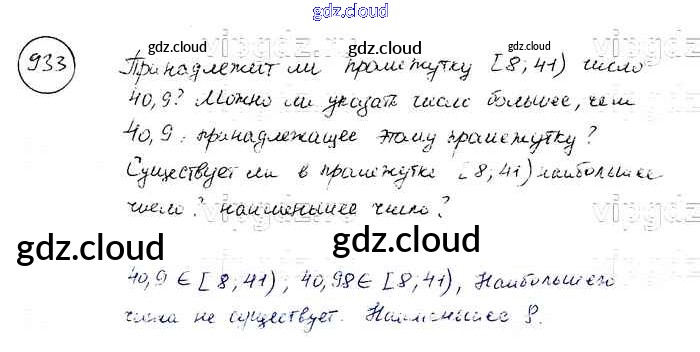 gdz.cloud
933
Принадлежит ли промежутку [8;41) число
40,9? Можно ли указать число большее, чем
40,9, принадлежащее этому промежутку?
Существует ли в промежутке [8;41) наибольшее
число? наименьшее число?
40,9 ∈ [8;41), 40,98 ∈ [8;41), Наибольшего
числа не существует. Наименьшее 8.
gdz.cloud gdz.cloud gdz.cloud
gdz.cloud gdz.cloud gdz.cloud
gdz.cloud gdz.cloud
gdz.cloud gdz.cloud gdz.cloud
vipgdz